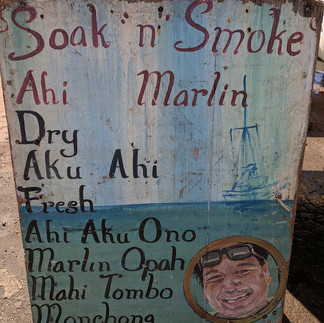 Soak 'n' Smoke
Ahi Marlin
Dry
Aku Ahi
Fresh
Ahi Aku Ono
Marlin Opah
Mahi Tombo
Monchong